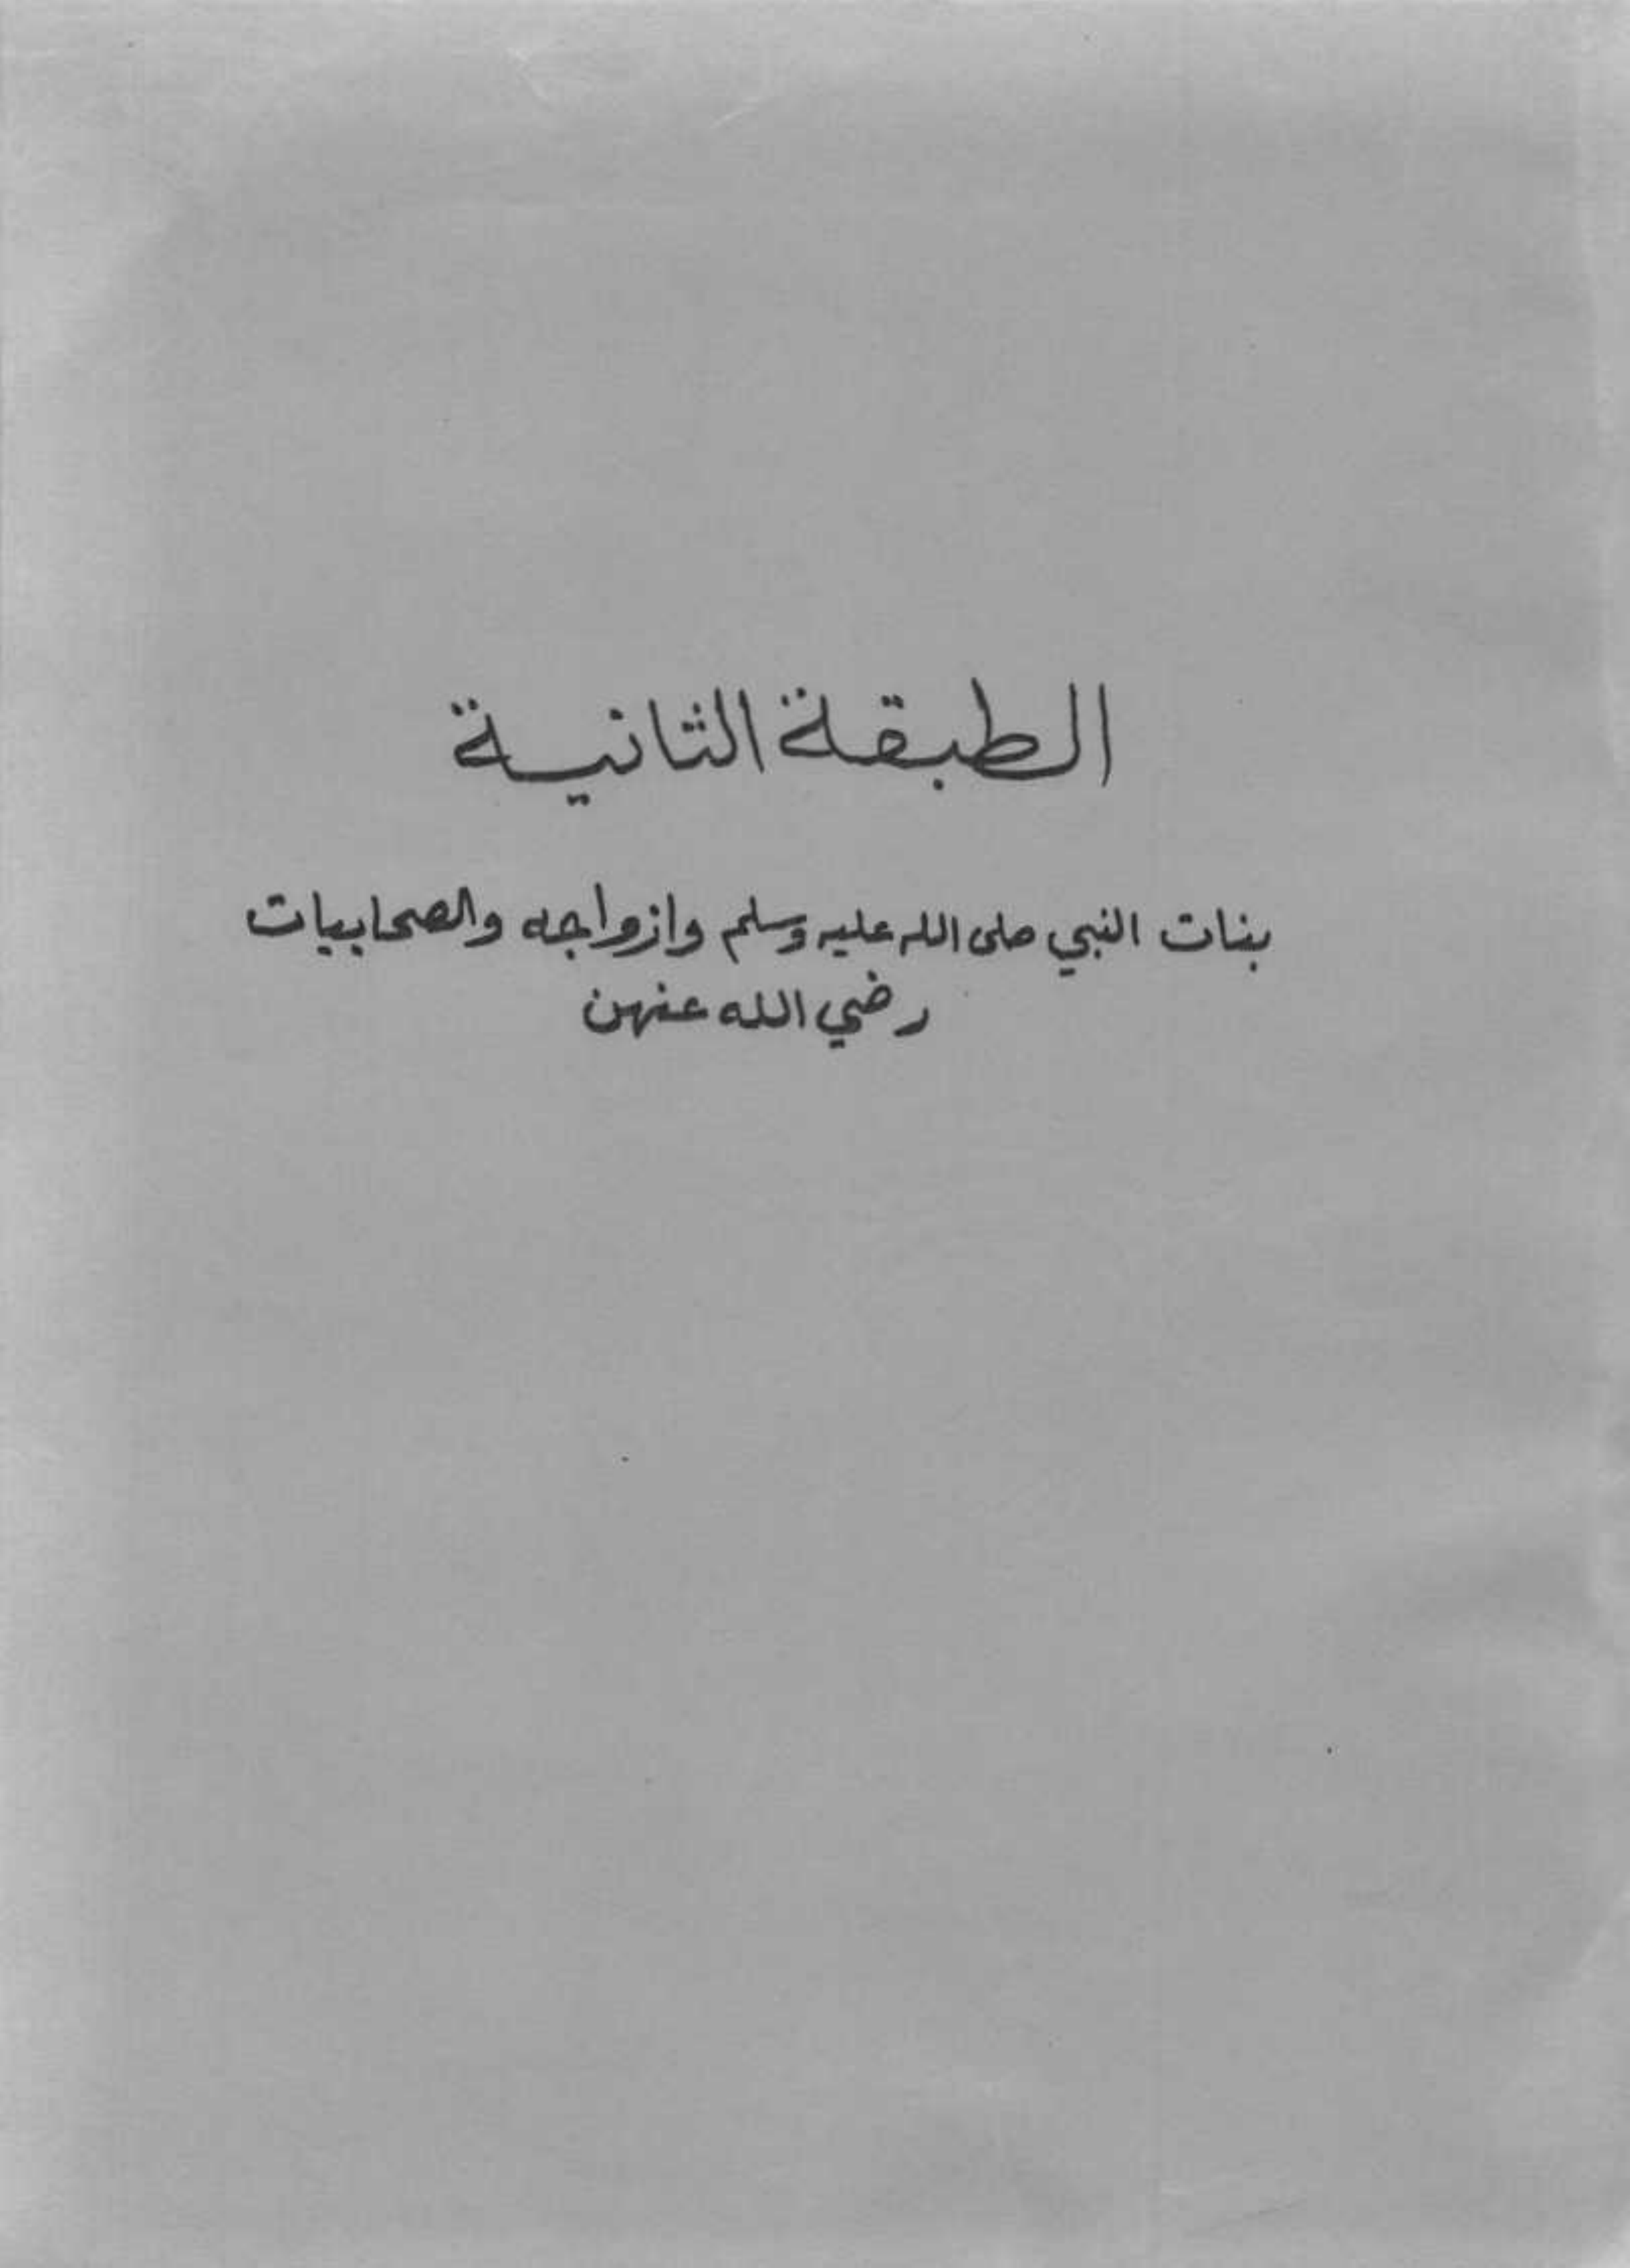 الطبقة الثانية
بنات النبي صلى الله عليه وسلم وازواجه والصحابيات
رضي الله عنهن